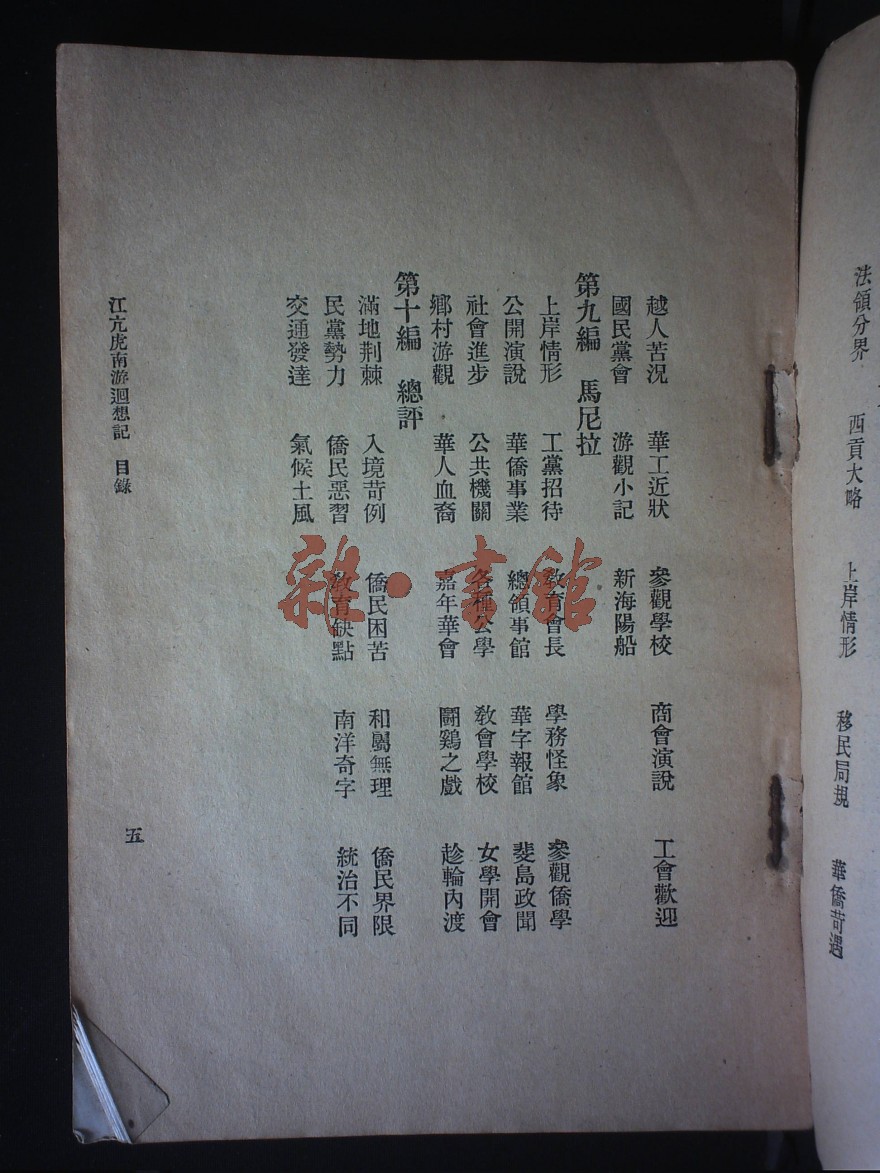 法領分界　西貢大略　上岸情形　移民局規　華僑苛遇
越人苦況　華工近狀　參觀學校　商會演說　工會歡迎
國民黨會　游觀小記　新海陽船
第九編　馬尼拉
上岸情形　工黨招待　教育會長　學務怪象　參觀僑學
公開演說　華僑事業　總領事館　華字報館　斐島政聞
社會進步　公共機關　各種公學　教會學校　女學開會
鄉村游觀　華人血裔　嘉年華會　鬭鷄之戲　趁輪內渡
第十編　總評
滿地荆棘　入境苛例　僑民困苦　和屬無理　僑民界限
民黨勢力　僑民惡習　教育缺點　南洋奇字　統治不同
交通發達　氣候土風
江亢虎南游迴想記　目錄
五
雜·書館